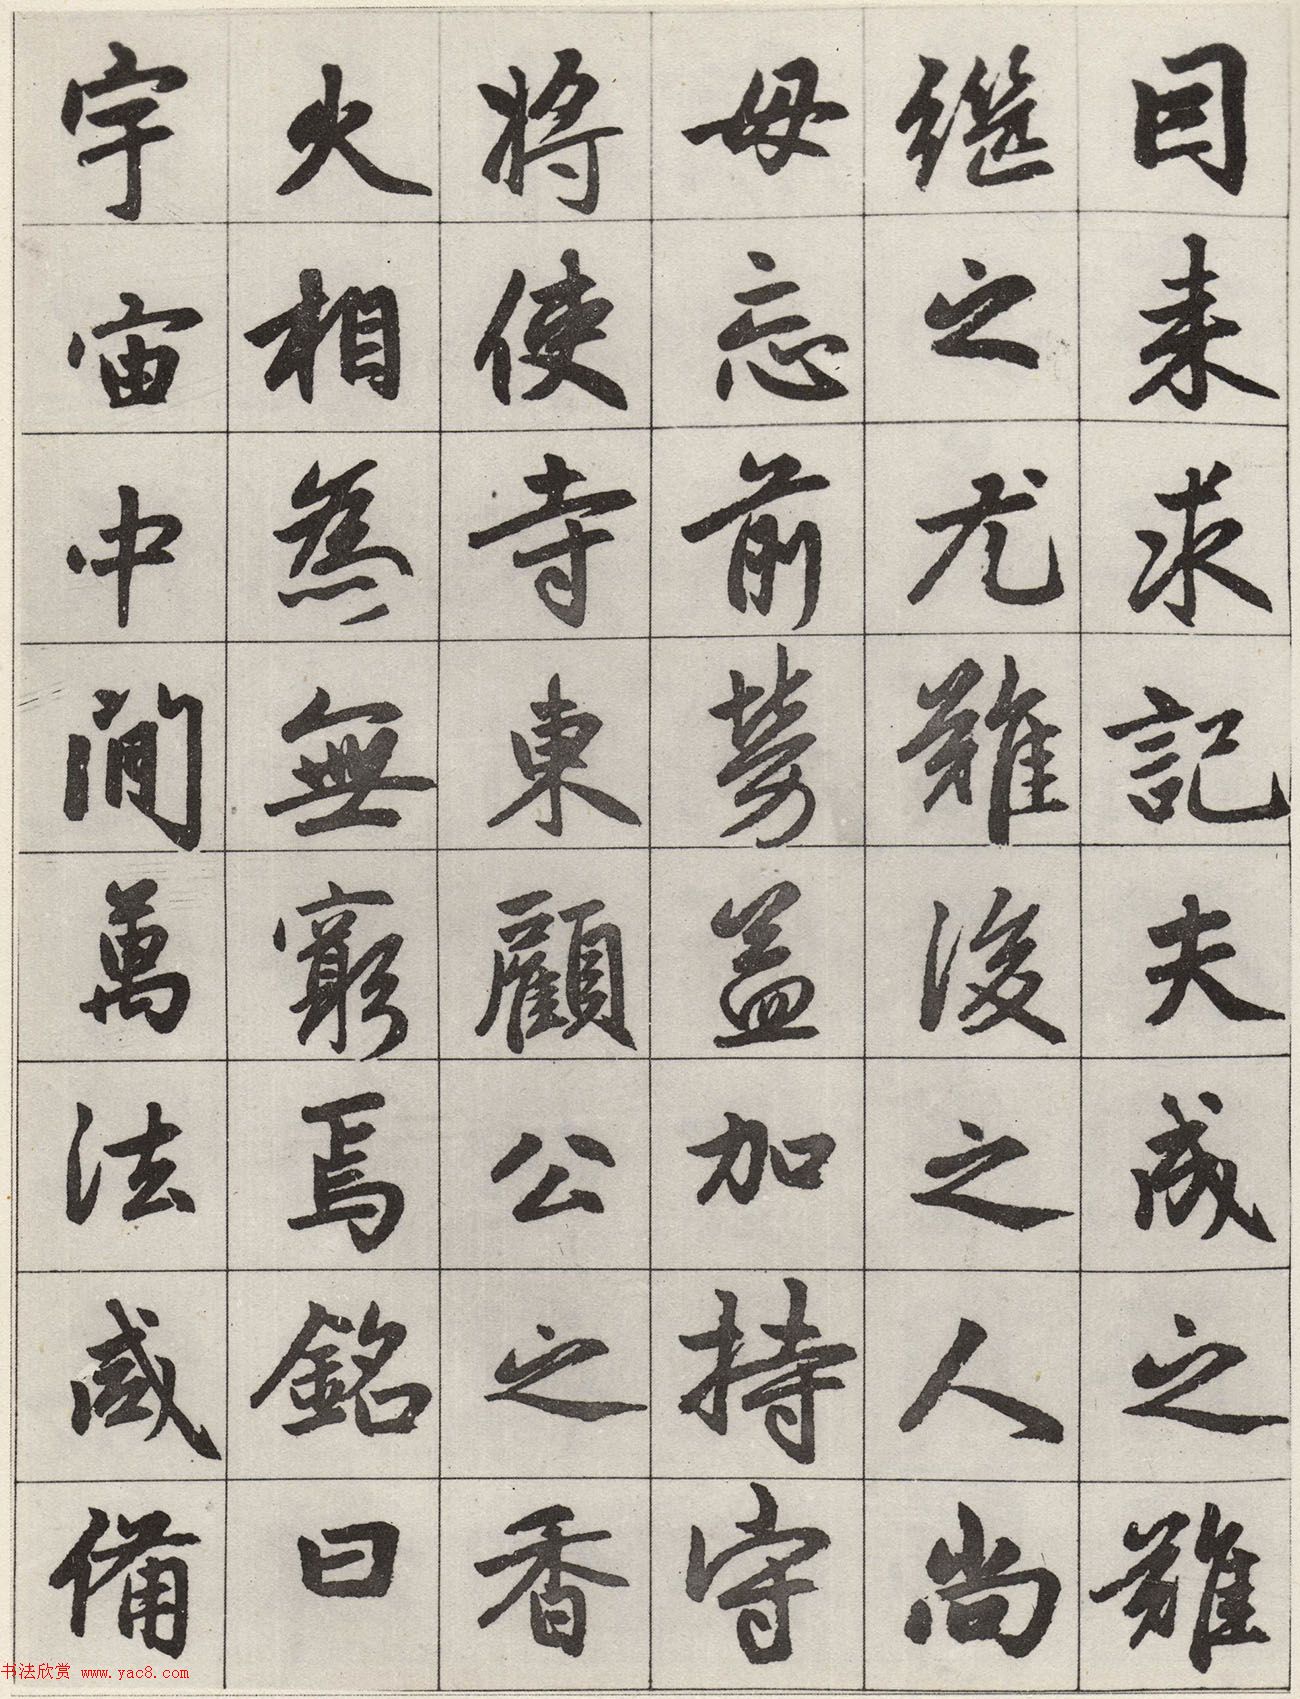 因来求記夫成之難
繼之尤難後之人尚
毋忘前勞益加持守
將使寺東顧公之香
火相為無窮焉銘曰
宇宙中間萬法咸備
书法欣赏 www.yac8.com